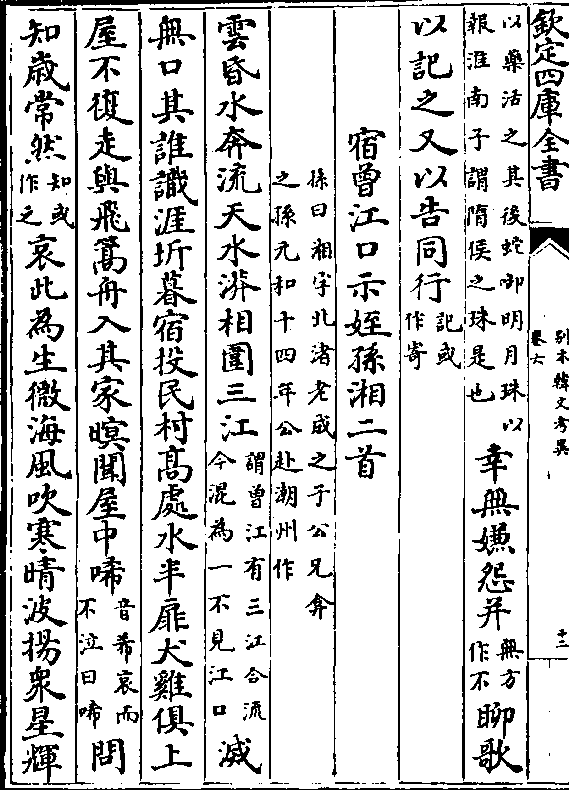 欽定四庫全書
別本韓文考異
卷六
十二
以藥活之其後蛇啣明月珠以
報淮南子謂隋侯之珠是也
幸無嫌怨并
無方
作不
聊歌
以記之又以告同行
記或
作寄
宿曾江口示姪孫湘二首
孫曰湘字北渚老成之子公兄弇
之孫元和十四年公赴潮州作
雲昏水奔流天水漭相圍三江
謂曾江有三江合流
今混為一不見江口
滅
無口其誰識涯圻暮宿投民村高處水半扉犬雞俱上
屋不復走與飛篙舟入其家暝聞屋中唏
音希哀而
不泣曰唏
問
知歲常然
知或
作之
哀此為生微海風吹寒晴波揚衆星輝